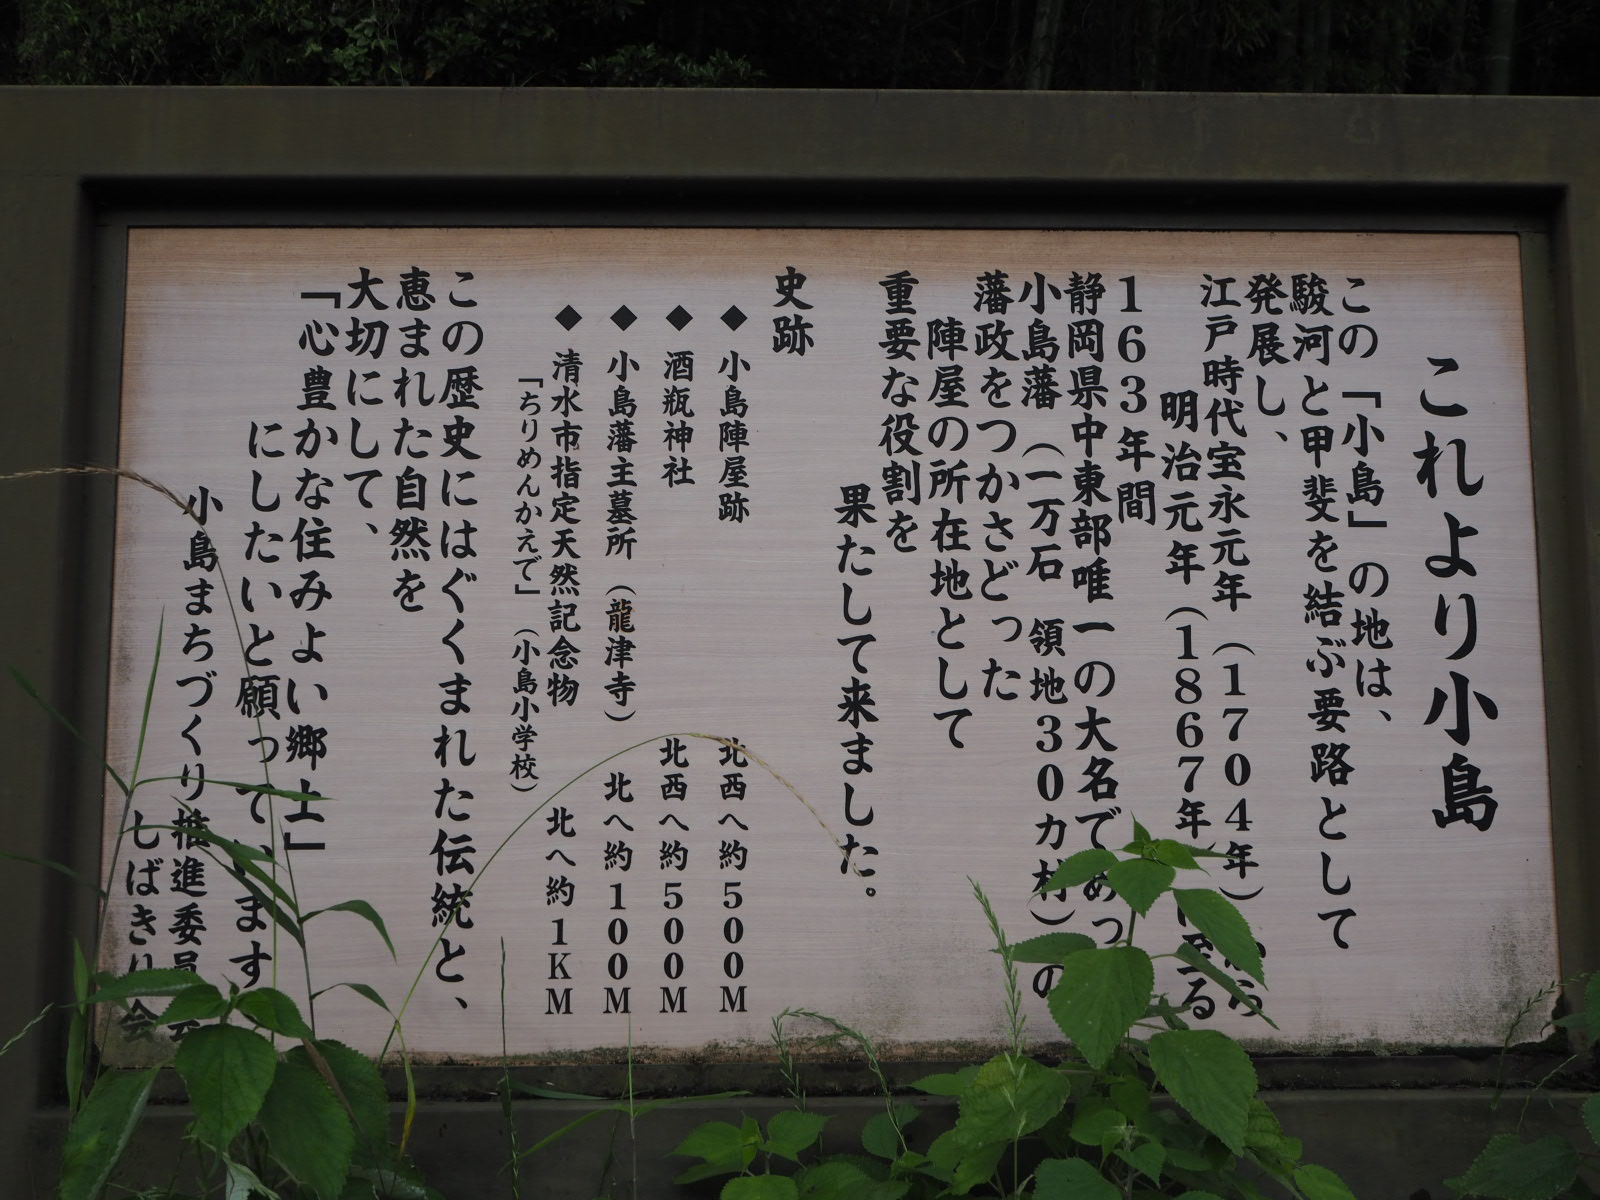 これより小島
この「小島」の地は、
駿河と甲斐を結ぶ要路として
発展し、
江戸時代宝永元年（1704年）から
明治元年（1867年）に至る
163年間
静岡県中東部唯一の大名であった
小島藩（一万石 領地30カ村）の
藩政をつかさどった
陣屋の所在地として
重要な役割を
果たして来ました。
史跡
◆小島陣屋跡 北西へ約500M
◆酒瓶神社 北西へ約500M
◆小島藩主墓所（龍津寺） 北へ約100M
◆清水市指定天然記念物 北へ約1KM
「ちりめんかえで」（小島小学校）
この歴史にはぐくまれた伝統と、
恵まれた自然を
大切にして、
「心豊かな住みよい郷土」
にしたいと願っています
小島まちづくり推進委員会
しばきり会